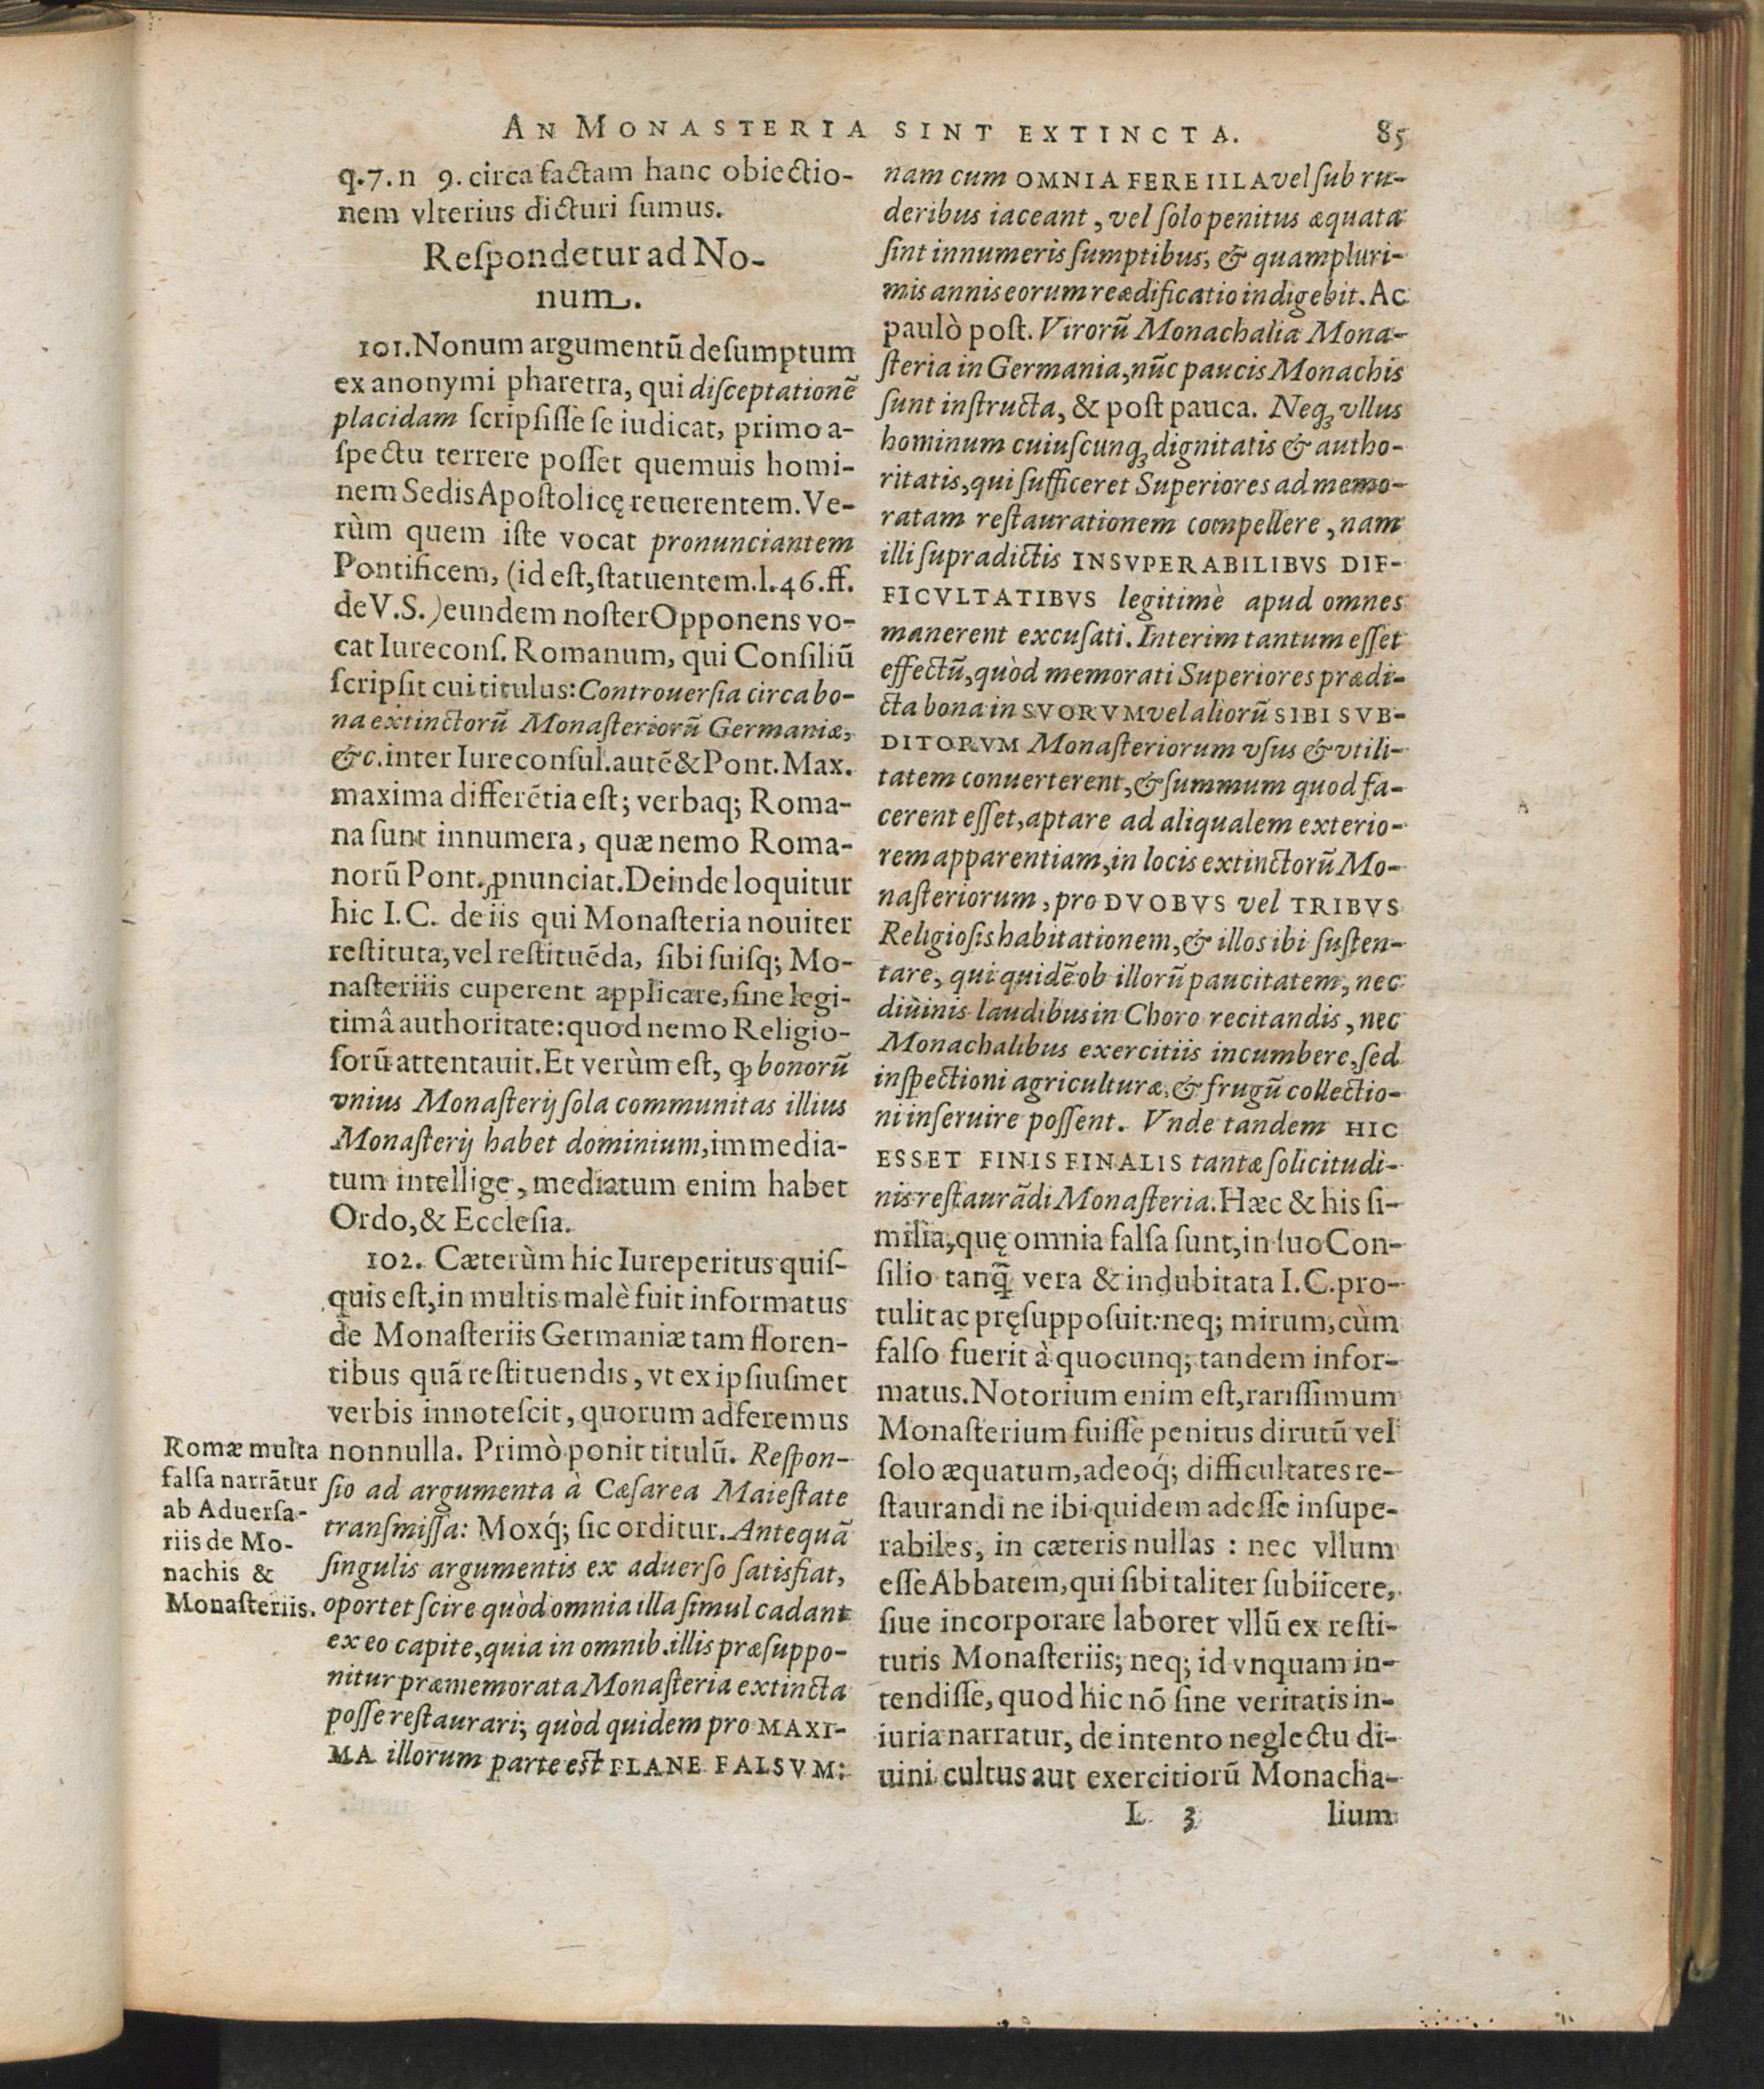 AN MONASTERIA SINT EXTINCTA. 85
q. 7. n 9. circa factam hanc obiectio-
nem vlterius dicturi ſumus.
Reſpondetur ad No-
num.
101. Nonum argumentũ deſumptum
ex anonymi pharetra, qui diſceptationẽ
placidam ſcripſiſſe ſe iudicat, primo a-
ſpectu terrere poſſet quemuis homi-
nem Sedis Apoſtolicę reuerentem. Ve-
rùm quem iſte vocat pronunciantem
Pontificem, (id eſt, ſtatuentem. l. 46. ff.
de V. S.) eundem noſter Opponens vo-
cat Iureconſ. Romanum, qui Conſiliũ
ſcripſit cui titulus: Controuerſia circa bo-
na extinctorũ Monaſteriorũ Germaniæ,
&c. inter Iureconſul. autẽ & Pont. Max.
maxima differẽtia eſt; verbaq; Roma-
na ſunt innumera, quæ nemo Roma-
norũ Pont. ꝓnunciat. Deinde loquitur
hic I. C. de iis qui Monaſteria nouiter
reſtituta, vel reſtituẽda, ſibi ſuiſq; Mo-
naſteriiis cuperent applicare, ſine legi-
timâ authoritate: quod nemo Religio-
ſorũ attentauit. Et verùm eſt, ꝙ bonorũ
vnius Monaſterij ſola communitas illius
Monaſterij habet dominium, immedia-
tum intellige, mediatum enim habet
Ordo, & Eccleſia.
102. Cæterùm hic Iureperitus quiſ-
quis eſt, in multis malè fuit informatus
de Monaſteriis Germaniæ tam floren-
tibus quã reſtituendis, vt ex ipſiuſmet
verbis innoteſcit, quorum adferemus
nonnulla. Primò ponit titulũ. Reſpon-
ſio ad argumenta à Cæſarea Maieſtate
tranſmiſſa: Moxq́; ſic orditur. Antequã
ſingulis argumentis ex aduerſo ſatisfiat,
oportet ſcire quòd omnia illa ſimul cadant
ex eo capite, quia in omnib. illis præſuppo-
nitur præmemorata Monaſteria extincta
poſſe reſtaurari; quòd quidem pro MAXI-
MA illorum parte eſt PLANE FALSVM:
Romæ multa
falſa narrãtur
ab Aduerſa-
riis de Mo-
nachis &
Monaſteriis.
nam cum OMNIA FERE IILA vel ſub ru-
deribus iaceant, vel ſolo penitus æquata
ſint innumeris ſumptibus, & quampluri-
mis annis eorum reædificatio indigebit. Ac
paulò poſt. Virorũ Monachalia Mona-
ſteria in Germania, nũc paucis Monachis
ſunt inſtructa, & poſt pauca. Neqꝫ vllus
hominum cuiuſcunqꝫ dignitatis & autho-
ritatis, qui ſufficeret Superiores ad memo-
ratam reſtaurationem compellere, nam
illi ſupradictis INSVPERABILIBVS DIF-
FICVLTATIBVS legitimè apud omnes
manerent excuſati. Interim tantum eſſet
effectũ, quòd memorati Superiores prædi-
cta bona in SVORVM vel aliorũ SIBI SVB-
DITORVM Monaſteriorum vſus & vtili-
tatem conuerterent, & ſummum quod fa-
cerent eſſet, aptare ad aliqualem exterio-
rem apparentiam, in locis extinctorũ Mo-
naſteriorum, pro DVOBVS vel TRIBVS
Religioſis habitationem, & illos ibi ſuſten-
tare, qui quidẽ ob illorũ paucitatem, nec
diuinis laudibus in Choro recitandis, nec
Monachalibus exercitiis incumbere, ſed
inſpectioni agriculturæ, & frugũ collectio-
ni inſeruire poſſent. Vnde tandem HIC
ESSET FINIS FINALIS tantæ ſolicitudi-
nis reſtaurãdi Monaſteria. Hæc & his ſi-
milia, quę omnia falſa ſunt, in ſuo Con-
ſilio tanq̃ vera & indubitata I. C. pro-
tulit ac pręſuppoſuit: neq; mirum, cùm
falſo fuerit à quocunq; tandem infor-
matus. Notorium enim eſt, rariſſimum
Monaſterium fuiſſe penitus dirutũ vel
ſolo æquatum, adeoq́; difficultates re-
ſtaurandi ne ibi quidem adeſſe inſupe-
rabiles, in cæteris nullas: nec vllum
eſſe Abbatem, qui ſibi taliter ſubiicere,
ſiue incorporare laboret vllũ ex reſti-
tutis Monaſteriis; neq; id vnquam in-
tendiſſe, quod hic nõ ſine veritatis in-
iuria narratur, de intento neglectu di-
uini cultus aut exercitiorũ Monacha-
L 3 lium